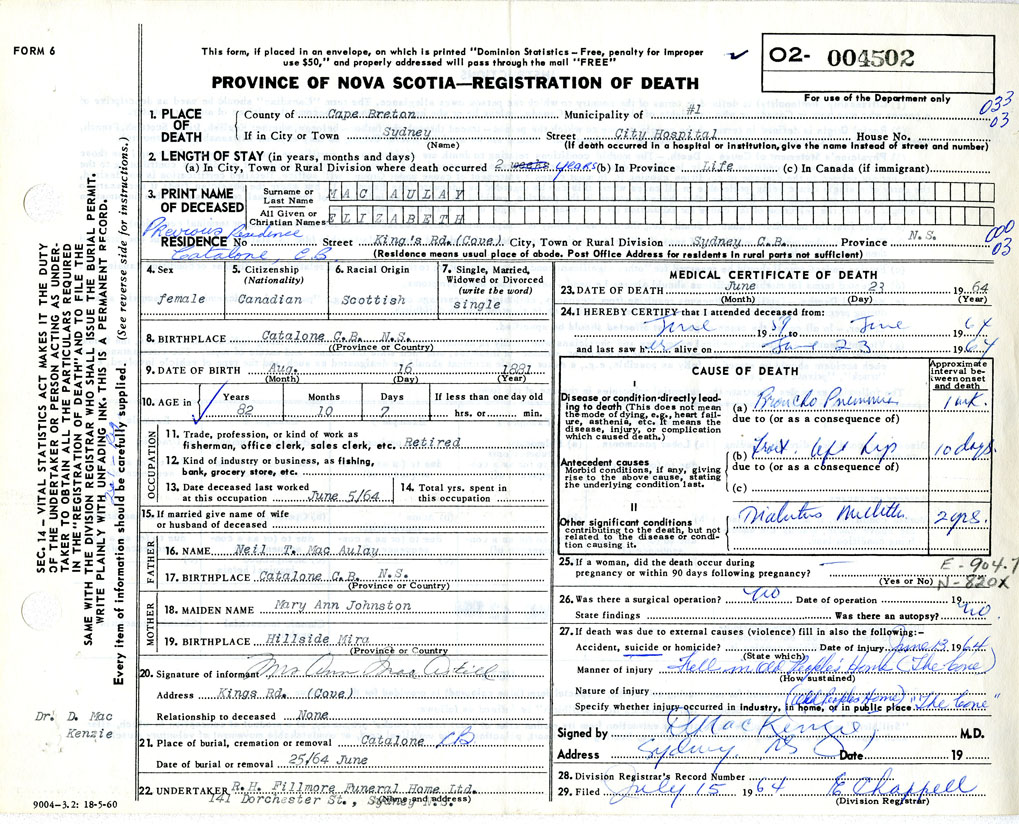 FORM 6
This form, if placed in an envelope, on which is printed "Dominion Statistics – Free, penalty for improper
use $50," and properly addressed will pass through the mail "FREE"
✓
02- 004502
For use of the Department only
PROVINCE OF NOVA SCOTIA—REGISTRATION OF DEATH
033
03
1. PLACE OF DEATH
County of Cape Breton Municipality of #1
If in City or Town Sydney Street City Hospital House No.
(Name) (If death occurred in a hospital or institution, give the name instead of street and number)
2. LENGTH OF STAY (in years, months and days)
(a) In City, Town or Rural Division where death occurred 2 weeks years (b) In Province Life (c) In Canada (if immigrant)
3. PRINT NAME OF DECEASED
Surname or Last Name MAC AULAY
All Given or Christian Names ELIZABETH
Previous Residence
Catalone, C.B.
RESIDENCE No Street King's Rd. (Cove) City, Town or Rural Division Sydney C.B. Province N.S.
(Residence means usual place of abode. Post Office Address for residents in rural parts not sufficient)
000
03
4. Sex
female
5. Citizenship
(Nationality)
Canadian
6. Racial Origin
Scottish
7. Single, Married,
Widowed or Divorced
(write the word)
single
8. BIRTHPLACE Catalone C.B. N.S.
((Province or Country)
9. DATE OF BIRTH Aug. 16 1881
(Month) (Day) (Year)
10. AGE in
Years Months Days If less than one day old
82 10 7 hrs. or min.
OCCUPATION
11. Trade, profession, or kind of work as
fisherman, office clerk, sales clerk, etc. Retired
12. Kind of industry or business, as fishing,
bank, grocery store, etc.
13. Date deceased last worked
at this occupation June 5/64
14. Total yrs. spent in
this occupation
15. If married give name of wife
or husband of deceased
FATHER
16. NAME Neil T. Mac Aulay
17. BIRTHPLACE Catalone C.B. N.S.
(Province or Country)
MOTHER
18. MAIDEN NAME Mary Ann Johnston
19. BIRTHPLACE Hillside Mira
(Province or Country
20. Signature of informant Mrs Ann Mac
Address Kings Rd. (Cove)
Relationship to deceased None
21. Place of burial, cremation or removal Catalone CB
Date of burial or removal 25/64 June
22. UNDERTAKER R.H. Fillmore Funeral Home Ltd.
141 Dorchester St., Sydney N.S.
(Name and address)
MEDICAL CERTIFICATE OF DEATH
23. DATE OF DEATH June 23 1964
(Month) (Day) (Year)
24. I HEREBY CERTIFY that I attended deceased from:
June 19 59 to June 1964
and last saw her alive on June 23 1964
CAUSE OF DEATH
Approximate
interval be-
tween onset
and death
I
Disease or condition directly lead-
ing to death (This does not mean
the mode of dying, e.g., heart fail-
ure, asthenia, etc. It means the
disease, injury, or complication
which caused death.)
(a) Broncho Pneumonia 1 wk.
due to (or as a consequence of)
Antecedent causes
Morbid conditions, if any, giving
rise to the above cause, stating
the underlying condition last.
(b) Fract. left hip 10 days
due to (or as a consequence of)
(c)
II
Other significant conditions
contributing to the death, but not
related to the disease or condi-
tion causing it.
Diabetes Mellitus 2 yrs.
25. If a woman, did the death occur during
pregnancy or within 90 days following pregnancy? —
(Yes or No)
E-904.7
N-820X
26. Was there a surgical operation? No Date of operation 19
State findings Was there an autopsy? No
27. If death was due to external causes (violence) fill in also the following:–
Accident, suicide or homicide? Date of injury June 13 1964
(State which)
Manner of injury Fell in Old People's Home (The Cove)
(How sustained)
Nature of injury
Specify whether injury occurred in industry, in home, or in public place. (Old Peoples Home) "The Cove"
Signed by D Mac Kenzie, M.D.
Address Sydney NS Date 19
28. Division Registrar's Record Number
29. Filed July 15 1964 E Chappell
(Division Registrar)
SEC. 14 – VITAL STATISTICS ACT MAKES IT THE DUTY
OF THE UNDERTAKER OR PERSON ACTING AS UNDER-
TAKER TO OBTAIN ALL THE PARTICULARS REQUIRED
IN THE "REGISTRATION OF DEATH" AND TO FILE THE
SAME WITH THE DIVISION REGISTRAR WHO SHALL ISSUE THE BURIAL PERMIT.
WRITE PLAINLY WITH UNFADING INK. THIS IS A PERMANENT RECORD.
Every item of information should be carefully supplied. (See reverse side for instructions.)
Dr. D. Mac
Kenzie
9004-3.2: 18-5-60